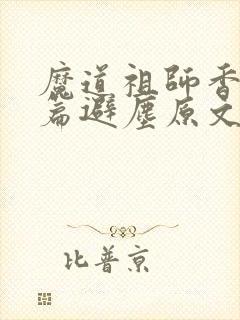 魔道祖師香
篇避塵原文
比普京